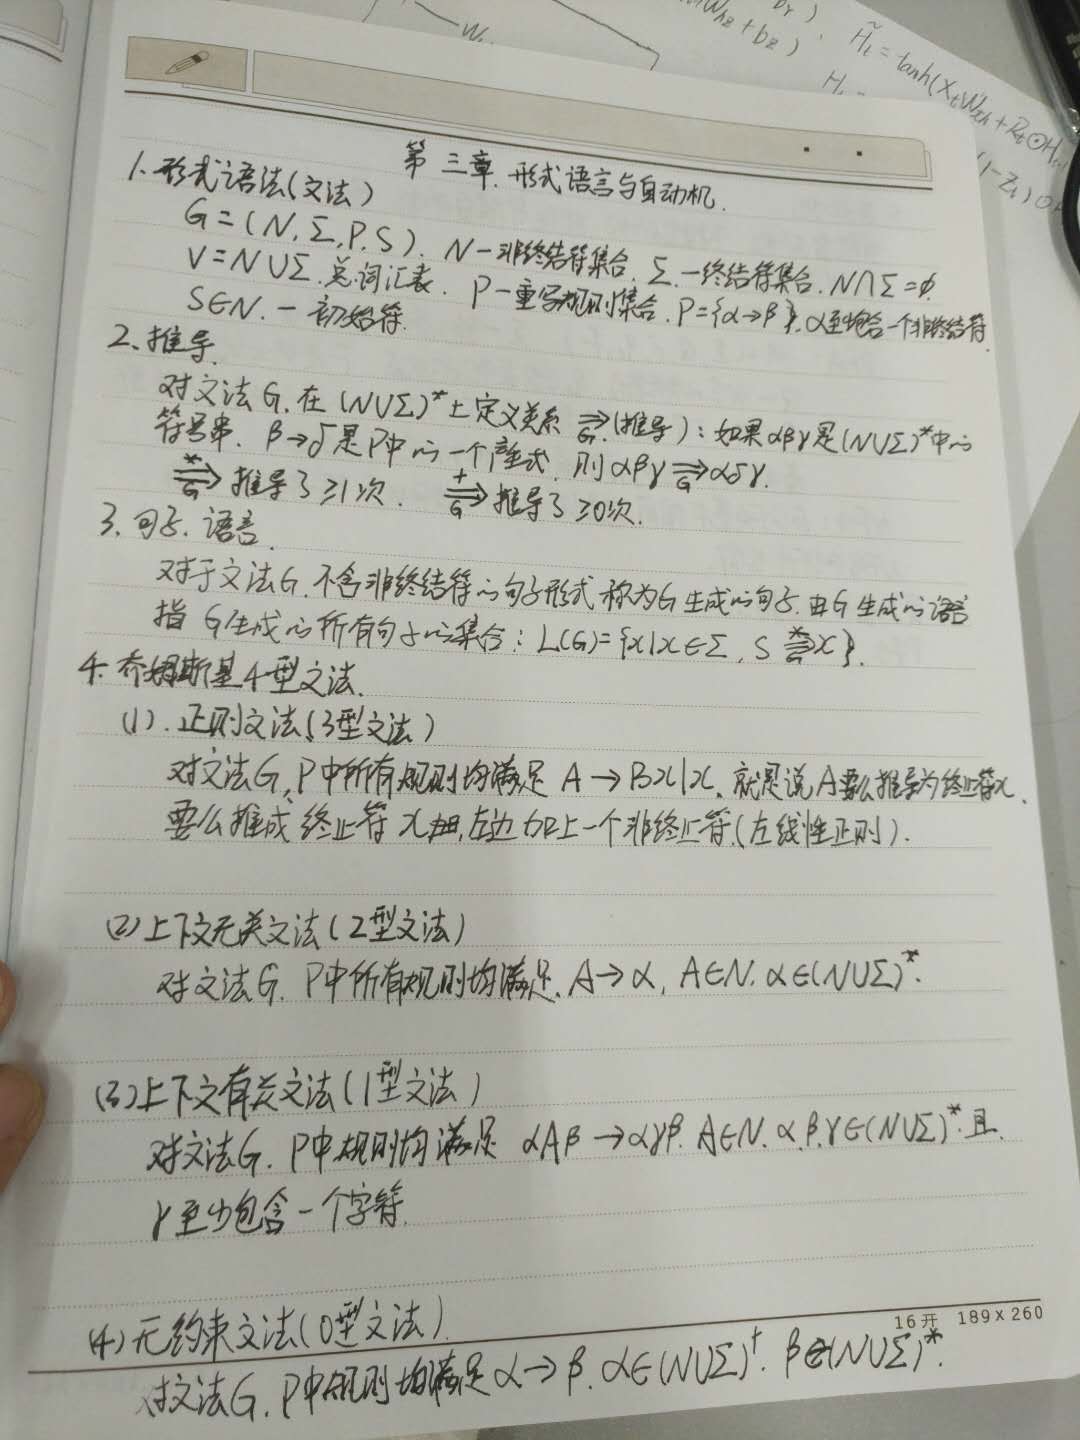 br)
Whz + bz)
H̃t = tanh(XtWxh + Rt⊙Ht-1
W
(1-Zt)⊙
第三章. 形式语言与自动机.
1. 形式语法(文法)
G=(N, Σ, P, S). N一非终结符集合. Σ一终结符集合. N∩Σ=ϕ.
V=N∪Σ. 总词汇表. P一重写规则集合. P={α→β}. α至少包含一个非终结符.
S∈N. 一初始符.
2. 推导.
对文法G. 在(N∪Σ)*上定义关系 ⇒G(推导): 如果αβγ是(N∪Σ)*中的
符号串. β→δ是P中的一个产生式. 则αβγ ⇒G αδγ.
*⇒G 推导了≥1次. +⇒G 推导了≥0次.
3. 句子. 语言.
对于文法G. 不含非终结符的句子形式称为G生成的句子. 由G生成的语言
指G生成的所有句子的集合: L(G)={x|x∈Σ, S *⇒G x}.
4. 乔姆斯基4型文法.
(1). 正则文法(3型文法)
对文法G, P中所有规则均满足 A→Bx|x. 就是说A要么推导为终止符x.
要么推成终止符x, 左边加上一个非终止符.(左线性正则).
(2)上下文无关文法(2型文法)
对文法G. P中所有规则均满足. A→α, A∈N. α∈(N∪Σ)*.
(3)上下文有关文法(1型文法)
对文法G. P中规则均满足 αAβ→αγβ. A∈N. α.β.γ∈(N∪Σ)*. 且.
γ至少包含一个字符.
16开 189×260
(4)无约束文法(0型文法).
对文法G. P中规则均满足α→β. α∈(N∪Σ)†. β∈(N∪Σ)*.